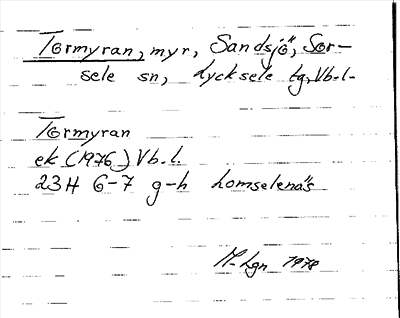 Tormyran, myr, Sandsjö, Sor-
sele sn, Lycksele tg, Vb. l.
Tormyran
ek (1976) Vb. l.
23H 6-7 g-h Lomselenäs
M. Lgn 1978